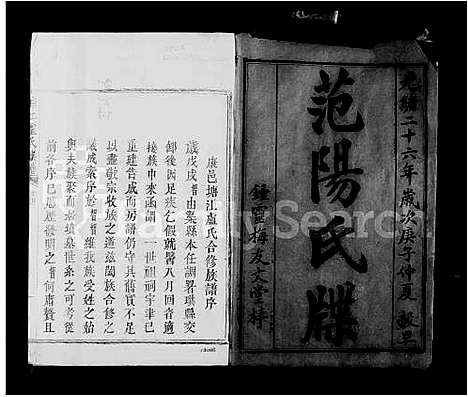 光緒二十六年歲次庚子仲夏穀旦
范陽氏牒
鍾靈梅友文堂梓
康邑塘江盧氏合修族譜序
歲戊戌晉由奚縣本任調署琪縣交
卸後因足疾乞假就醫八月回音適
接族中來函調一世祖祠宇業已
重建昔成而房譜仍守其舊實不足
以盡敬宗收族之道茲闔族合修之
議成索序於晉晉維我族受姓之始
與夫族聚而居墳墓世系之可考從
前各序已歷歷發明之晉何庸贅且
FamilySearch